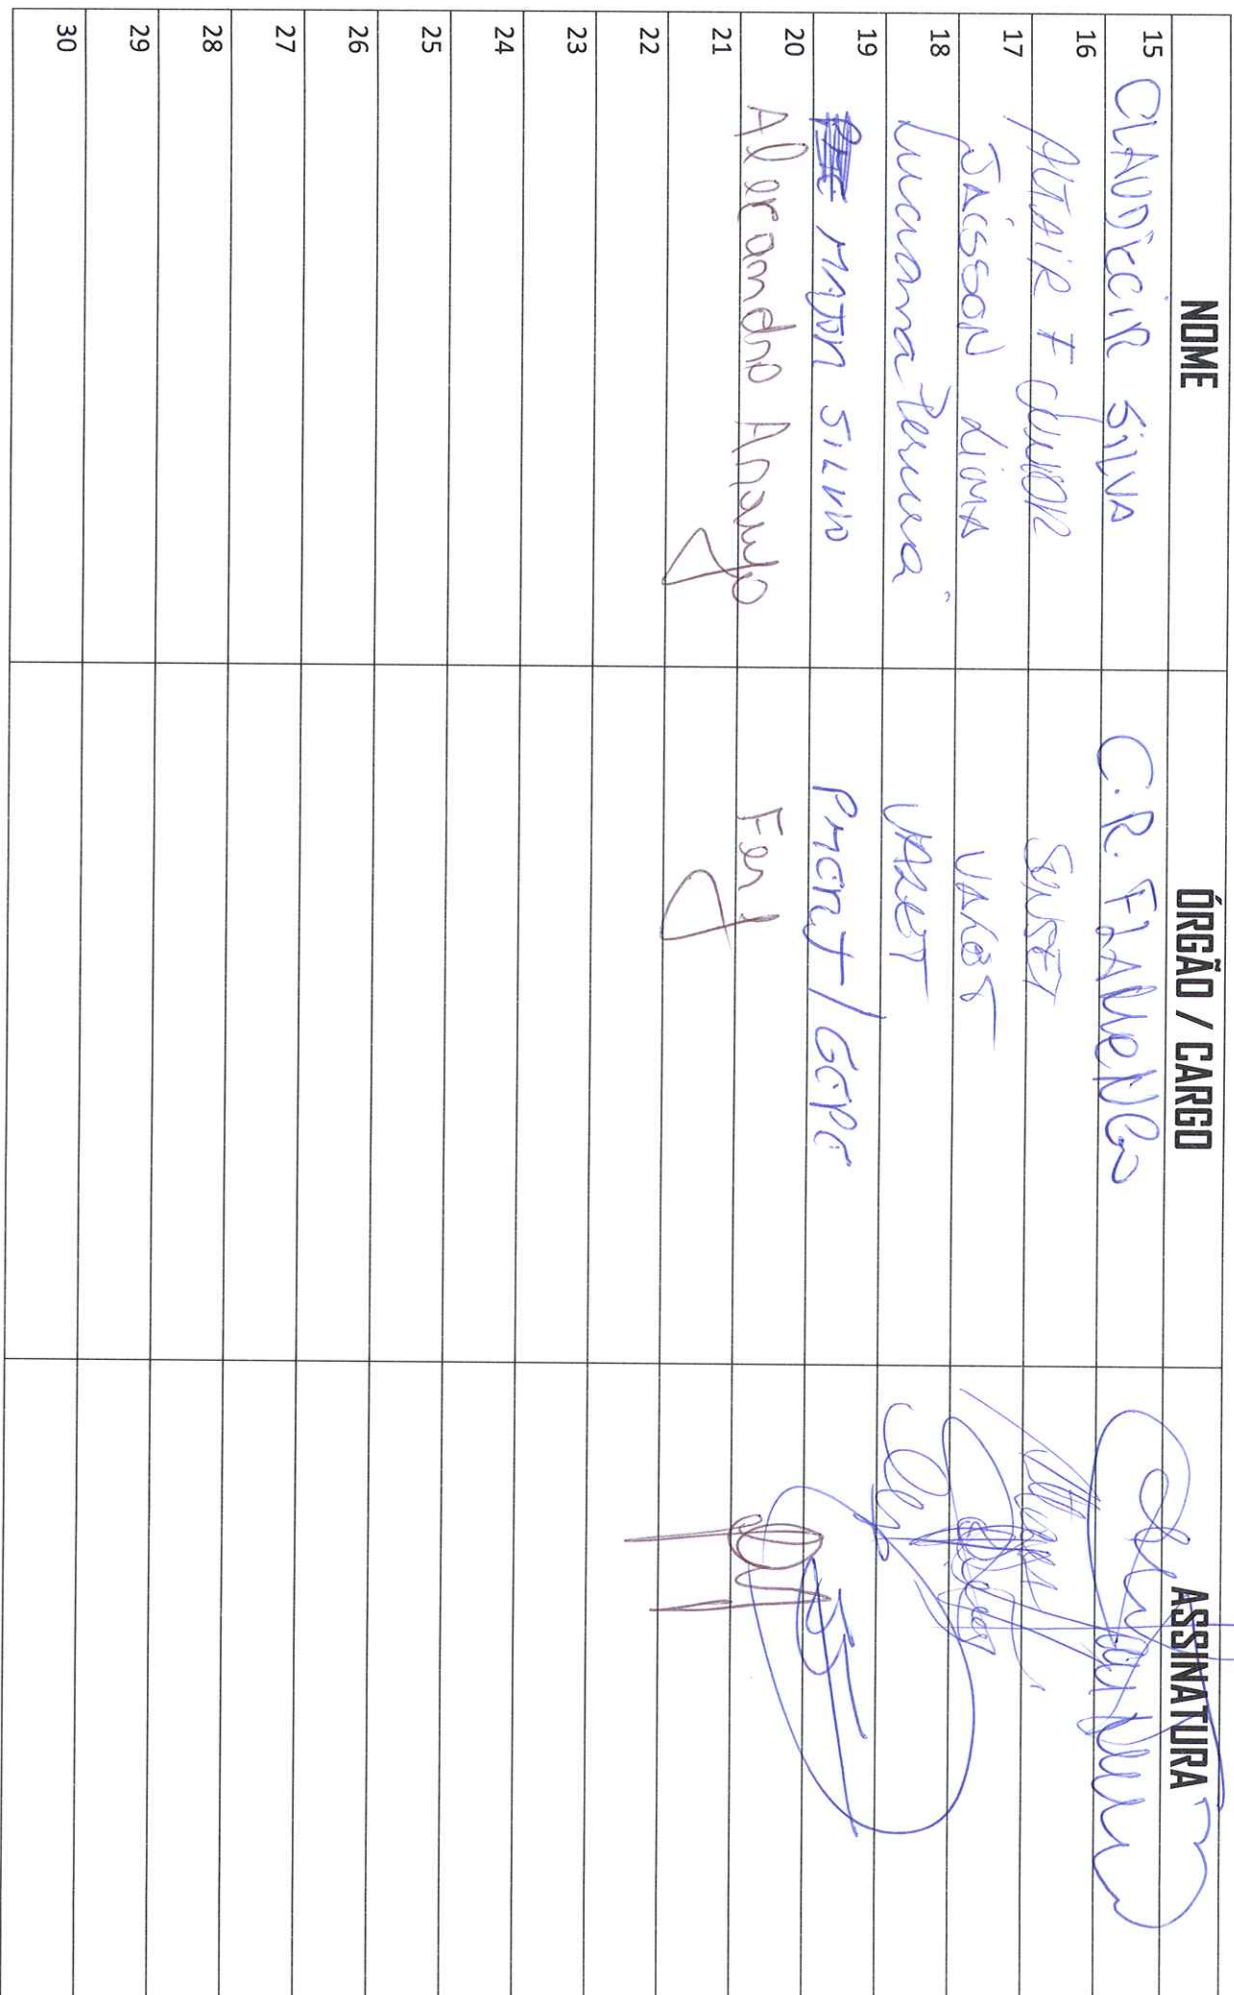 NOME ÓRGÃO / CARGO ASSINATURA
15 CLAUDECIR SILVA C.R. FLAMENGO
16 ALTAIR F JUNIOR SUNSET
17 JAISSON LIMA
18 Luciana Pereira
19 MAJOR SILVIO PMERJ / GEPE
20 Alexandro Araujo Ferj
21
22
23
24
25
26
27
28
29
30